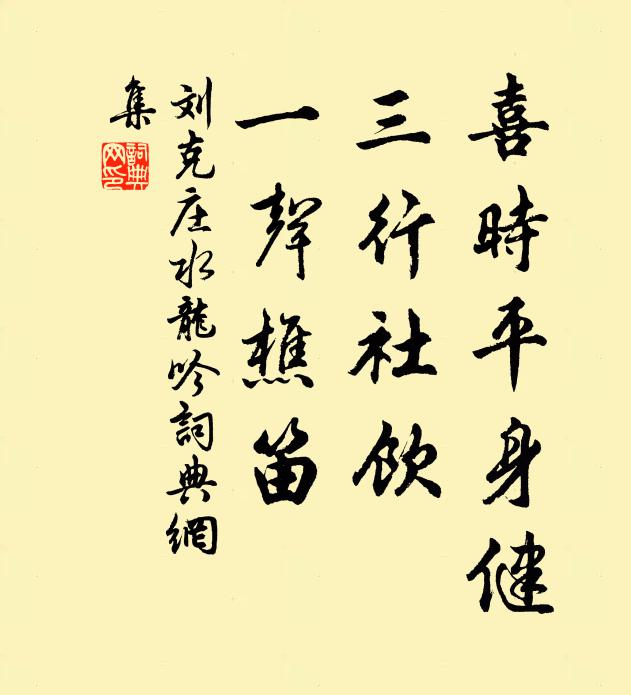 喜時平身健
三行社飲
一聲樵笛
刘克庄水龍吟詞典網
集
詞典网印